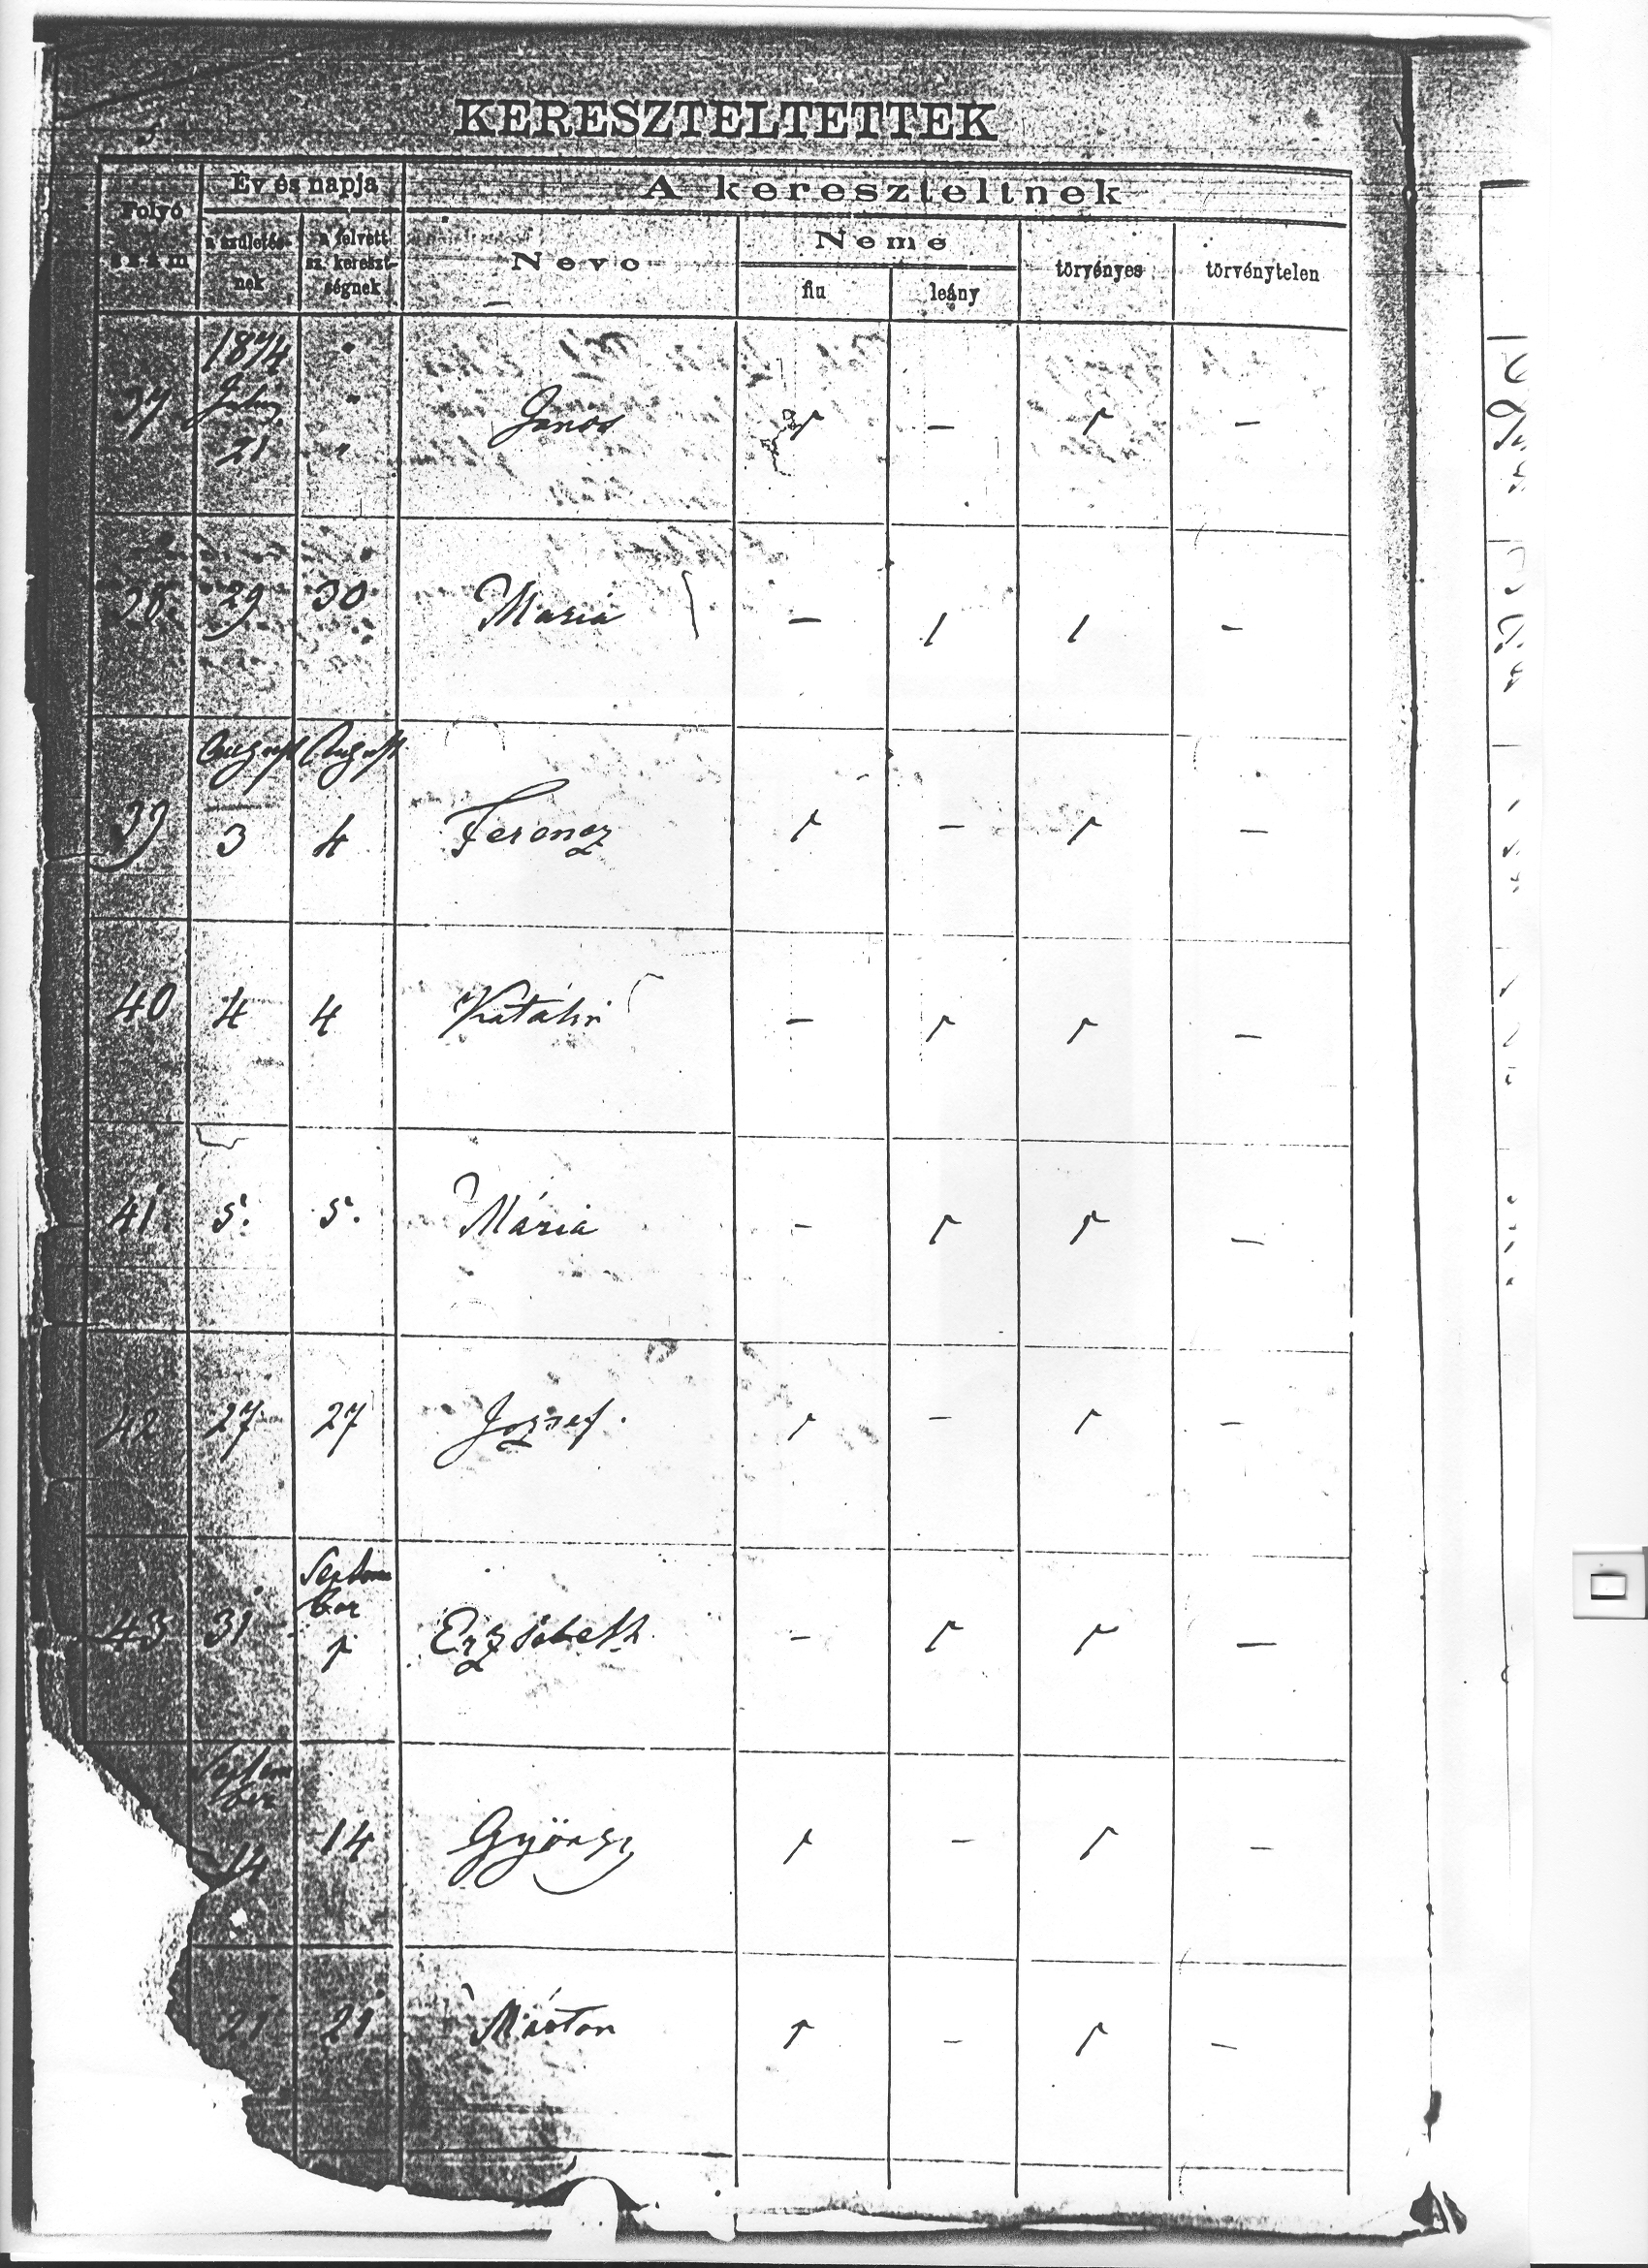 KERESZTELTETTEK
Folyó szám
Év és napja
a születés-
nek
A felvett
sz. kereszt-
ségnek
A kereszteltnek
Neve
Neme
fiu
leány
törvényes
törvénytelen
1874 "
37 " János 1 — 1 —
21 "
38. 29 30 Maria — 1 1 —
August August
39 3 4 Ferencz 1 — 1 —
40 4 4 Katalin — 1 1 —
41 5. 5. Mária — 1 1 —
42 27 27 Jozsef. 1 — 1 —
Septem
ber
43 31 1 Erzsébeth — 1 1 —
Septem
ber
14 14 György 1 — 1 —
21 21 Márton 1 — 1 —